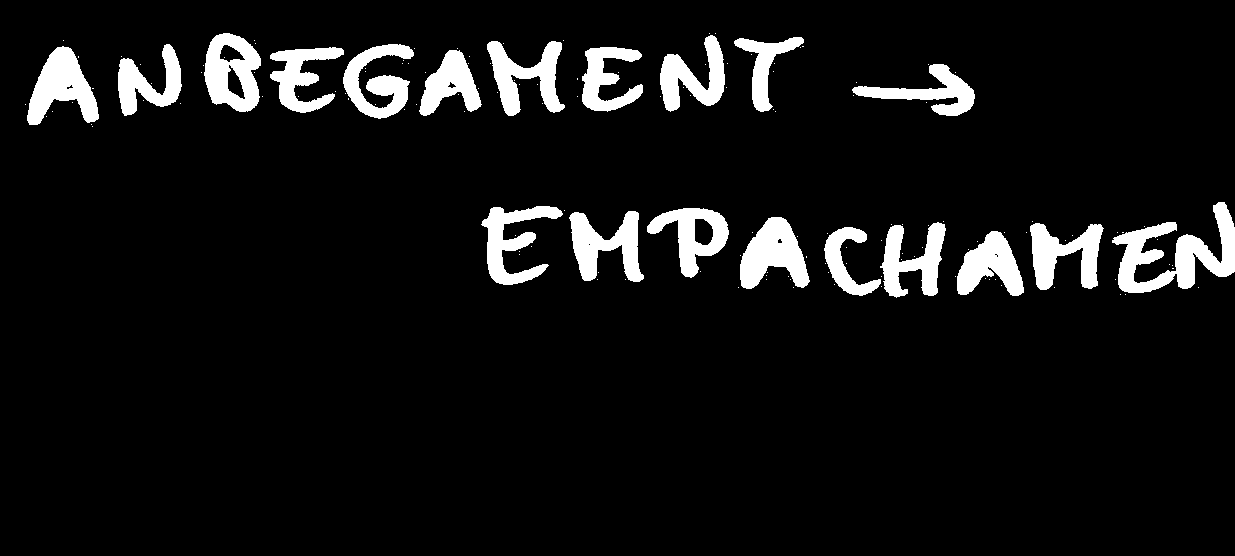 ANBEGAMENT →
EMPACHAMEN